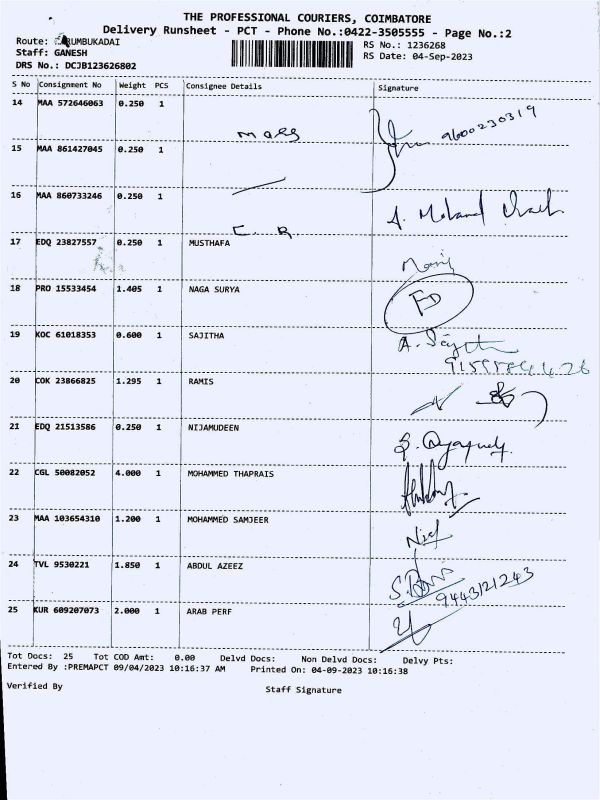 THE PROFESSIONAL COURIERS, COIMBATORE
Delivery Runsheet - PCT - Phone No.:0422-3505555 - Page No.:2
Route: RUMBUKADAI
Staff: GANESH
DRS No.: DCJB123626802
RS No.: 1236268
RS Date: 04-Sep-2023
S No Consignment No Weight PCS Consignee Details Signature
14 MAA 572646063 0.250 1 9600230319
15 MAA 861427045 0.250 1
16 MAA 860733246 0.250 1
17 EDQ 23827557 0.250 1 MUSTHAFA
18 PRO 15533454 1.405 1 NAGA SURYA FD
19 KOC 61018353 0.600 1 SAJITHA
20 COK 23866825 1.295 1 RAMIS
21 EDQ 21513586 0.250 1 NIJAMUDEEN
22 CGL 50082052 4.000 1 MOHAMMED THAPRAIS
23 MAA 103654310 1.200 1 MOHAMMED SAMJEER
24 TVL 9530221 1.850 1 ABDUL AZEEZ 9443121243
25 KUR 609207073 2.000 1 ARAB PERF
Tot Docs: 25 Tot COD Amt: 0.00 Delvd Docs: Non Delvd Docs: Delvy Pts:
Entered By :PREMAPCT 09/04/2023 10:16:37 AM Printed On: 04-09-2023 10:16:38
Verified By Staff Signature